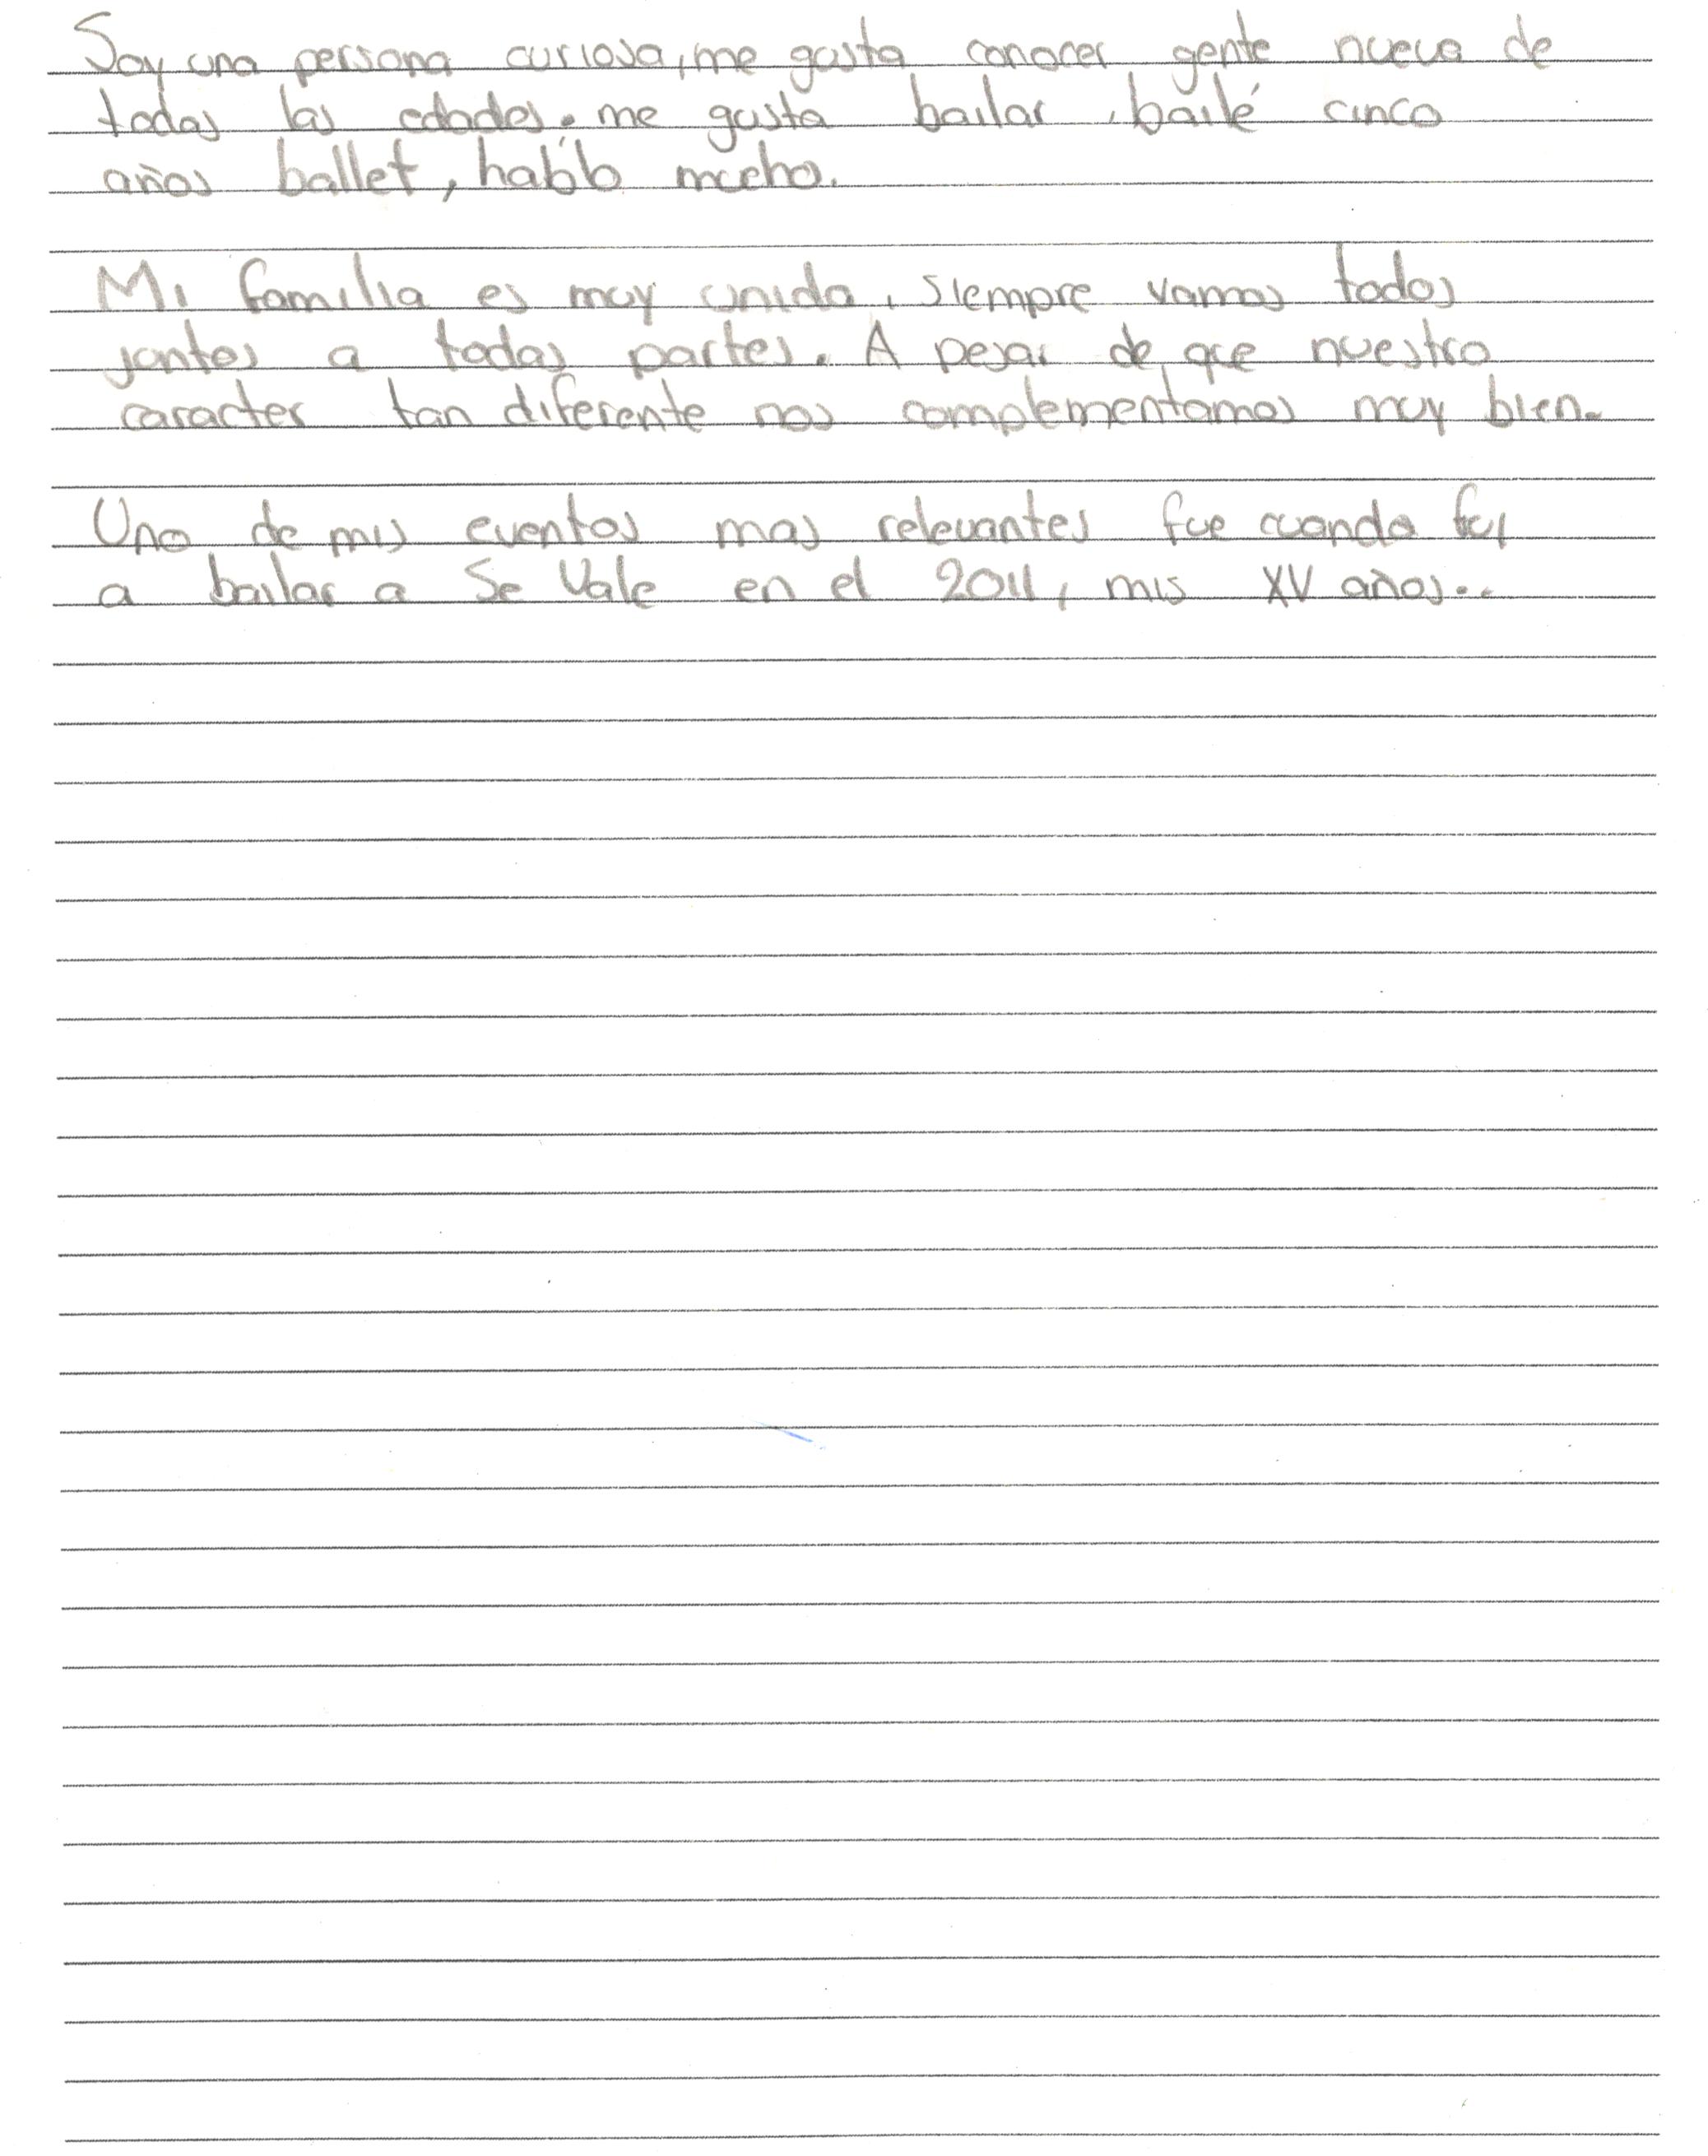 Soy una persona curiosa, me gusta conocer gente nueva de
todas las edades. me gusta bailar, bailé cinco
años ballet, hablo mucho.
Mi familia es muy unida, siempre vamos todos
juntos a todas partes. A pesar de que nuestro
caracter tan diferente nos complementamos muy bien.
Uno de mis eventos mas relevantes fue cuando fui
a bailar a Se Vale en el 2011, mis XV años..